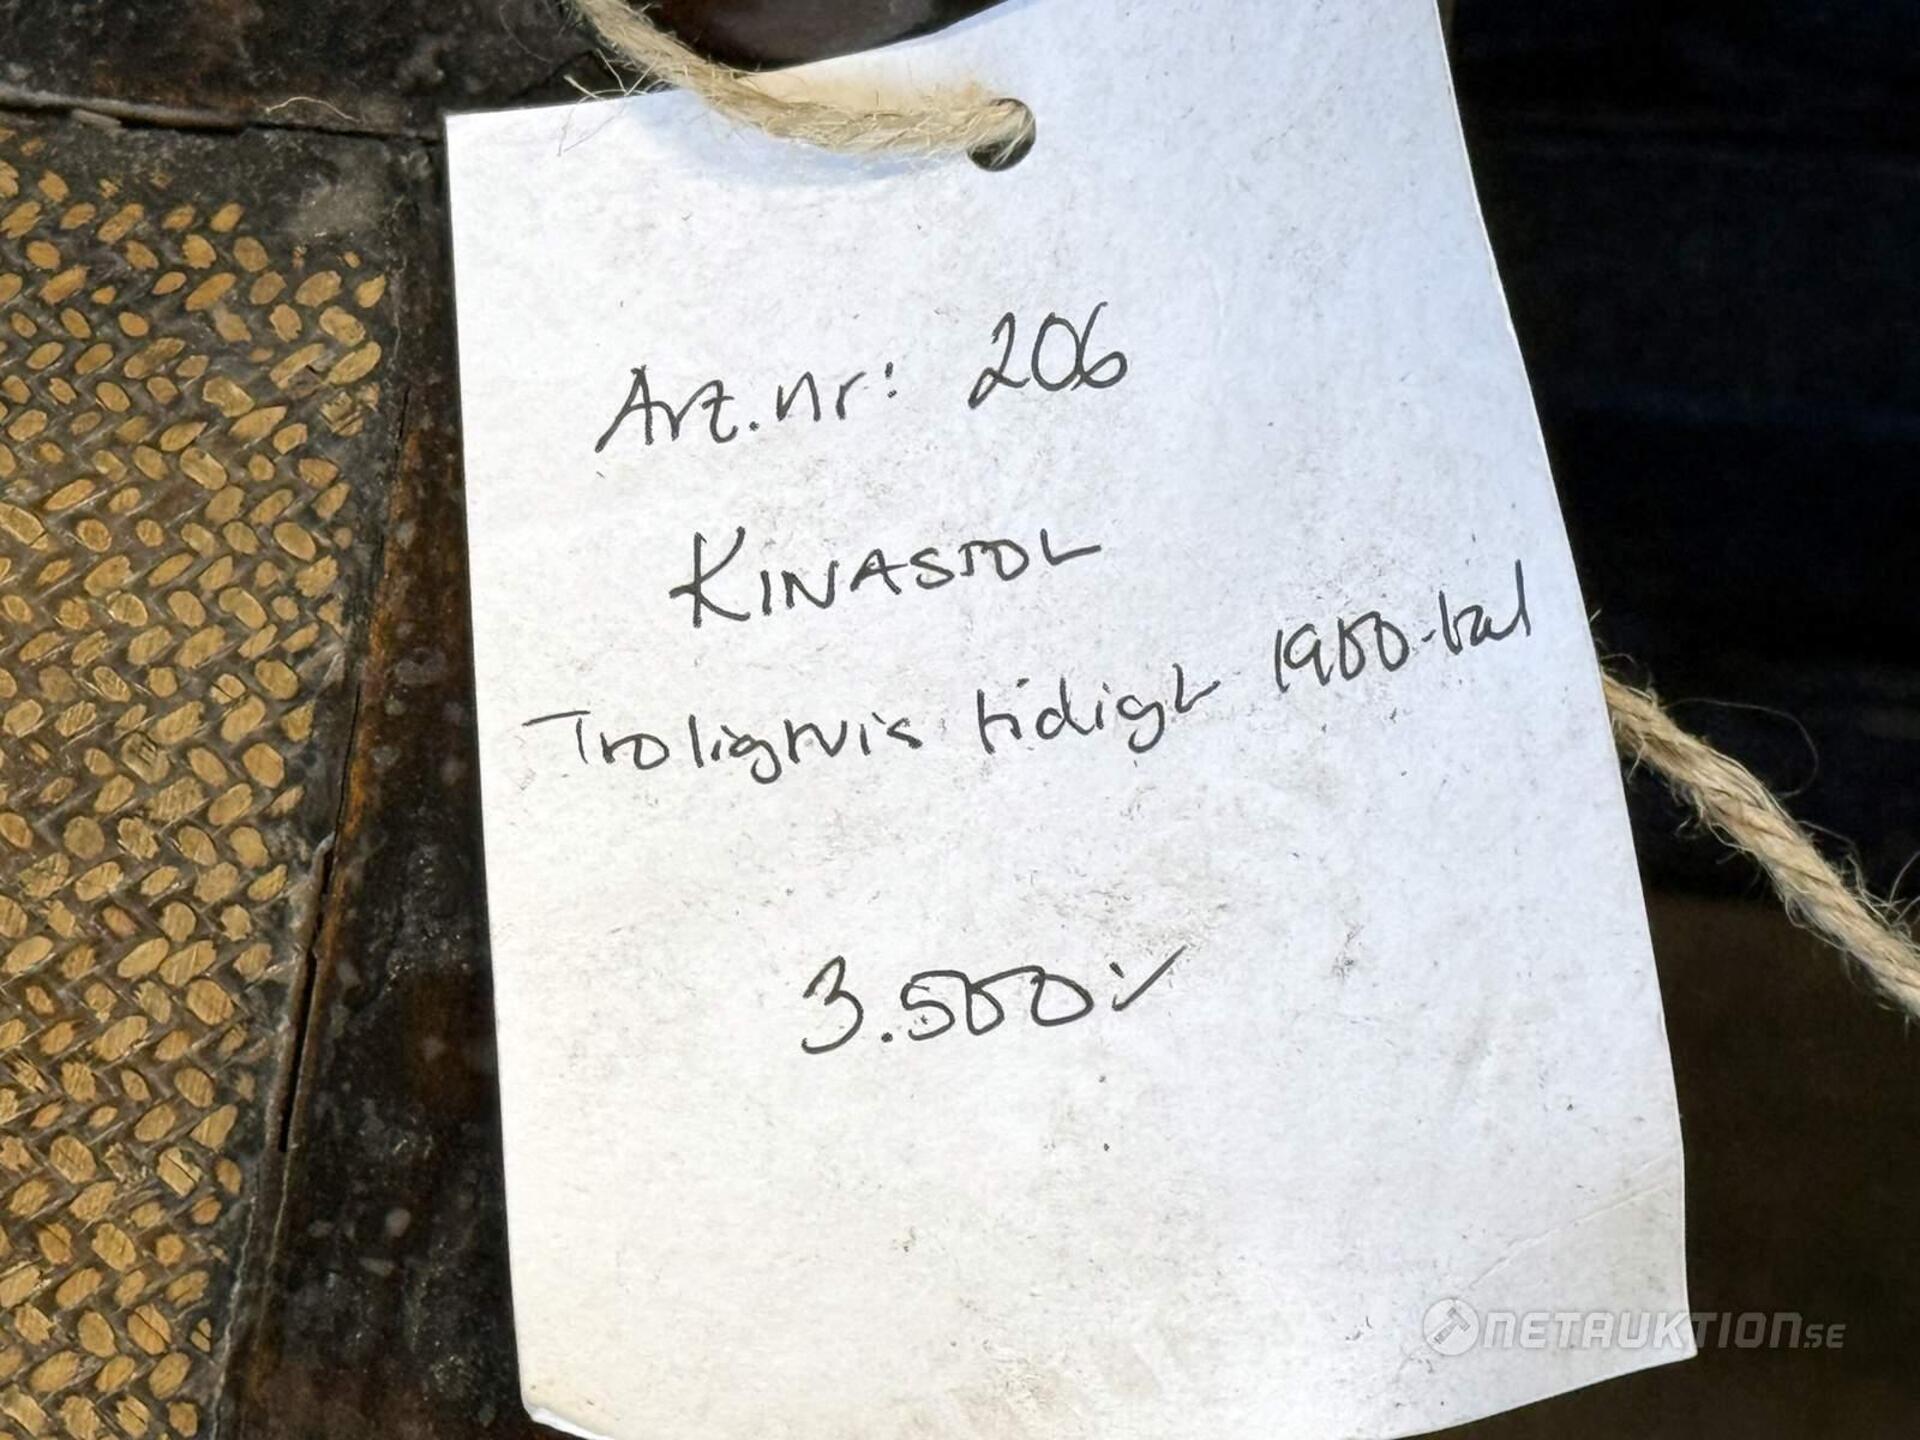 Art.nr: 206
KINASTOL
Troligtvis tidigt 1900-tal
3.500:-
NETAUKTION.SE